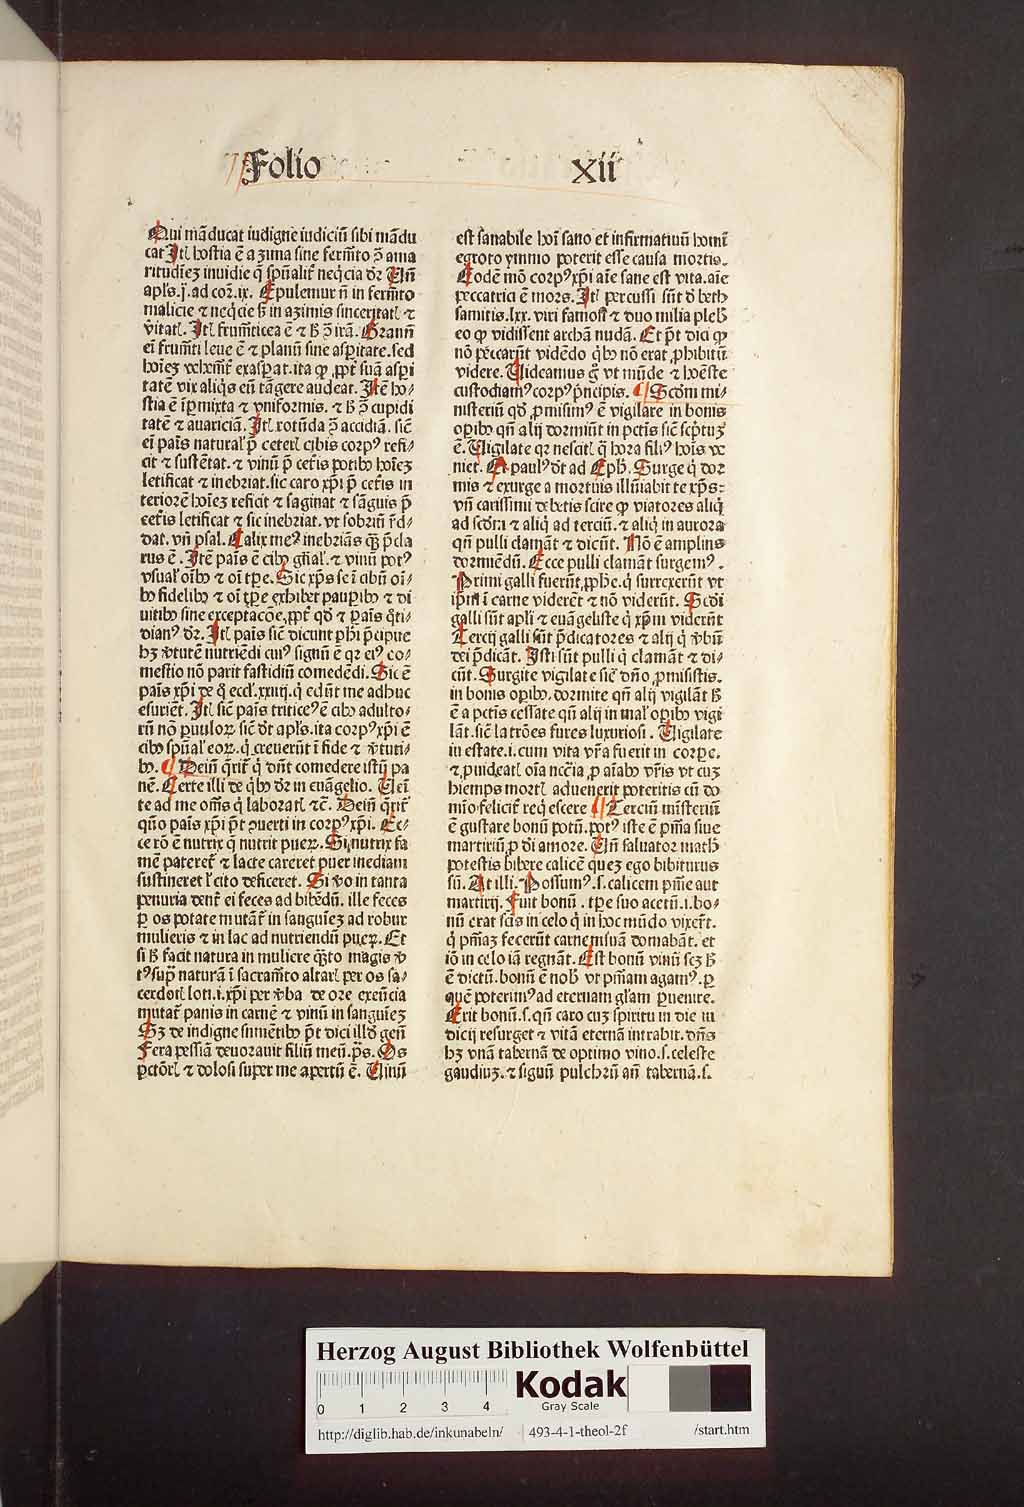 Folio xii
Qui mãducat iudigne iudiciũ sibi mãdu
cat Itꝉ hostia ẽ azima sine fermẽto ꝯ̃ ama
ritudiẽz inuidie q̃ spũalit᷑ neq̃cia dr̃ Uñ
apl̃s.j.ad cor̃.ix. Epulemur ñ in fermẽto
malicie ⁊ neq̃cie ß in azimis sinceritatꝉ ⁊
v̾itatꝉ. Itꝉ frumẽticea ẽ ⁊ ß ꝯ̃ irã. Granũ
ei frumẽti leue ẽ ⁊ planũ sine aspitate.sed
hoiẽz vehemẽt᷑ exaspat.ita ꝙ ꝓpt᷑ suã aspi
tatẽ vix aliq̃s eũ tãgere audeat. Itẽ ho⸗
stia ẽ ip̃mixta ⁊ vniformis. ⁊ ß ꝯ̃ cupidi
tatẽ ⁊ auariciã. Itꝉ rotũda ꝯ̃ accidiã. siẽ
ei paĩs natural᷑ p̃ ceterꝉ cibis corpꝰ refi⸗
cit ⁊ sustẽtat. ⁊ vinũ p̃ cet̃is potibꝰ hoiẽz
letificat ⁊ inebriat.sic caro xp̃i p̃ cet̃is in
teriorẽ hoiẽz reficit ⁊ saginat ⁊ sãguis p̃
cet̃is letificat ⁊ sic inebriat. vt sobriũ r̃d⸗
dat. vñ psal. Calix meꝰ inebriãs q̃ʒ p̃cla
rus ẽ. Itẽ paĩs ẽ cibꝰ gñal᷑ ⁊ vinũ potꝰ
vsual᷑ oĩbꝰ ⁊ oĩ tp̃e. Sic xp̃s se ĩ cibũ oĩ⸗
bꝰ fidelibꝰ ⁊ oĩ tp̃e exhibet paupibꝰ ⁊ di
uitibꝰ sine exceptacõe,ꝓpt᷑ qd̃ ⁊ paĩs q̃ti⸗
dianꝰ dr̃. Itꝉ paĩs siẽ dicunt ph̃i p̃cipue
hʒ v̾tutẽ nutriẽdi cuiꝰ signũ ẽ qꝛ eiꝰ co⸗
mestio nõ parit fastidiũ comedẽdi. Sic ẽ
paĩs xp̃i de q̃ eccl᷑.xxiiij.q̃ edũt me adhuc
esuriẽt. Itꝉ siẽ paĩs triticeꝰ ẽ cibꝰ adulto⸗
rũ nõ puuloꝝ siẽ dt̃ apl̃s. ita corpꝰ xp̃i ẽ
cibꝰ spũal᷑ eoꝝ.q̃ creuerũt ĩ fide ⁊ v̾tuti⸗
bꝰ. ¶ Deiñ q̃rit᷑ q̃ dñt comedere istũ pa
nẽ. Certe illi de q̃bꝰ dr̃ in euãgelio. Uei
te ad me om̃s q̃ laboratꝉ ⁊c̃. Deiñ q̃rit᷑
quõ paĩs xp̃i p̃t ꝯuerti in corpꝰ xp̃i. Ec⸗
ce rõ ẽ nutrix q̃ nutrit pueꝝ. Si nutrix fa
mẽ pateret᷑ ⁊ lacte careret puer inediam
sustineret l᷑ cito deficeret. Si v̾o in tanta
penuria dent᷑ ei feces ad bibẽdũ. ille feces
ꝑ os potate mutãt᷑ in sanguiẽz ad robur
mulieris ⁊ in lac ad nutriendũ pueꝝ. Et
si ß facit natura in muliere q̃to magis v̾
tꝰ sup̃ naturã ĩ sacramẽto altarꝉ per os sa⸗
cerdotꝉ loti.i.xp̃i per v̾ba de ore exeũcia
mutat᷑ panis in carnẽ ⁊ vinũ in sanguiẽz
Sʒ de indigne sumẽtibꝰ p̃t dici illd̃ geñ
Fera pessiã deuorauit filiũ meũ.p̃s. Os
pctõrꝉ ⁊ dolosi super me apertũ ẽ. Uinũ
est sanabile hoĩ sano et infirmatiuũ homĩ
egroto ymmo poterit esse causa mortis.
Eodẽ mõ corpꝰ xp̃i aĩe sane est vita.aĩe
peccatrici ẽ mors. Itꝉ percussi sũt d̃ beth
samitis.lxx. viri famosi ⁊ duo milia plebꝉ
eo ꝙ vidissent archã nudã. Et p̃t dici ꝙ
nõ peccarũt vidẽdo q̃bꝰ nõ erat ꝓhibitũ
videre. Uideamus g̃ vt mũde ⁊ hoẽste
custodiamꝰ corpꝰ p̃ncipis. ¶ Scdm̃ mi⸗
nisteriũ qd̃ ꝓmisimꝰ ẽ vigilare in bonis
opibꝰ qñ alij dormiũt in pctĩs siẽ scp̃tuʒ
ẽ. Uigilate qꝛ nescitꝉ q̃ hora filiꝰ hoĩs ve
niet. Et paulꝰ dt̃ ad Eph̃. Surge q̃ dor
mis ⁊ exurge a mortuis illũiabit te xp̃s:
vñ carissimi debetis scire ꝙ viatores aliq̃
ad scdm̃ ⁊ aliq̃ ad terciũ.⁊ aliq̃ in aurora
qñ pulli clamãt ⁊ dicũt. Nõ ẽ amplius
dormiẽdũ. Ecce pulli clamãt surgemꝰ.
Primi galli fuerũt,ꝓph̃e.q̃ surrexerũt vt
ip̃m ĩ carne viderẽt ⁊ nõ viderũt. Scdĩ
galli sũt apl̃i ⁊ euãgeliste q̃ xp̃m viderũt
Tercij galli sũt p̃dicatores ⁊ alij q̃ v̾bũ
dei p̃dicãt. Isti sũt pulli q̃ clamãt ⁊ di⸗
cũt. Surgite vigilate siẽ dño ꝓmisistis.
in bonis opibꝰ.dormite qñ alij vigilãt ß
ẽ a pctĩs cessate qñ alij in mal᷑ opibꝰ vigi
lãt.siẽ latrões fures luxuriosi. Uigilate
in estate.i.cum vita vr̃a fuerit in corpe.
⁊ ꝓuideatꝉ oĩa ncc̃ia ꝓ aĩabꝰ vr̃is vt cuʒ
hiemps mortꝉ aduenerit poteritis cũ do
mĩo felicit᷑ requiescere ¶ Terciũ mĩsteriũ
ẽ gustare bonũ potũ.potꝰ iste ẽ pñia siue
martiriũ ꝓ di amore. Uñ saluator math̃
potestis bibere calicẽ queʒ ego bibiturus
sũ. At illi. Possumꝰ.s.calicem pñie aut
martirij. Fuit bonũ. tp̃e suo acetũ.i.bo⸗
nũ erat scĩs in celo q̃ in hoc mũdo vixer̃t.
q̃ pñiaʒ fecerũt carnem suã domabãt. et
iõ in celo iã regnãt. Est bonũ vinũ scʒ ß
ẽ dictũ.bonũ ẽ nob̃ vt pñiam agamꝰ.ꝑ
quẽ poterimꝰ ad eternam gl̃am puenire.
Erit bonũ.s.qñ caro cuʒ spiritu in die iu
dicij resurget ⁊ vitã eternã intrabit.dñs
hʒ vnã tabernã de optimo vino.s.celeste
gaudiuʒ.⁊ signũ pulchrũ añ tabernã.s.
Herzog August Bibliothek Wolfenbüttel
0 1 2 3 4
Kodak
Gray Scale
http://diglib.hab.de/inkunabeln/ 493-4-1-theol-2f /start.htm